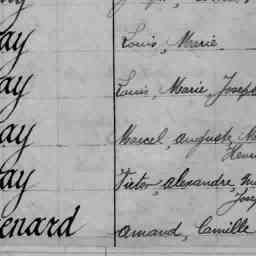 ay Louis, Marie
ay Louis, Marie, Joseph
ay Marcel, Auguste, M
Henri
ay Victor, Alexandre,
Jose
enard Amand, Camille